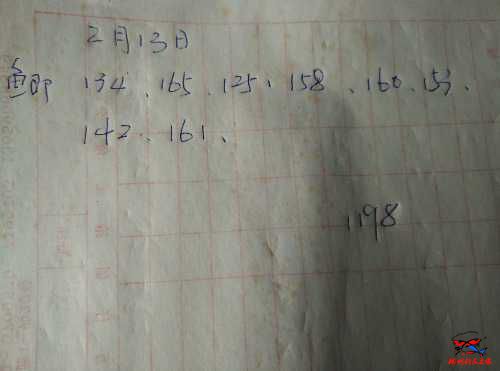 2月13日
鱼即 134、165、125、158、160、153、
142、161、
1198